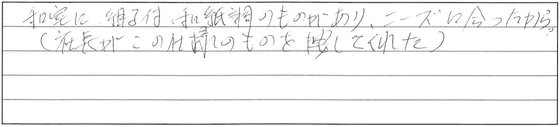 和室に組子付、和紙調のものがあり、ニーズに合ったから。
(社長がこの仕様のものを探してくれた)